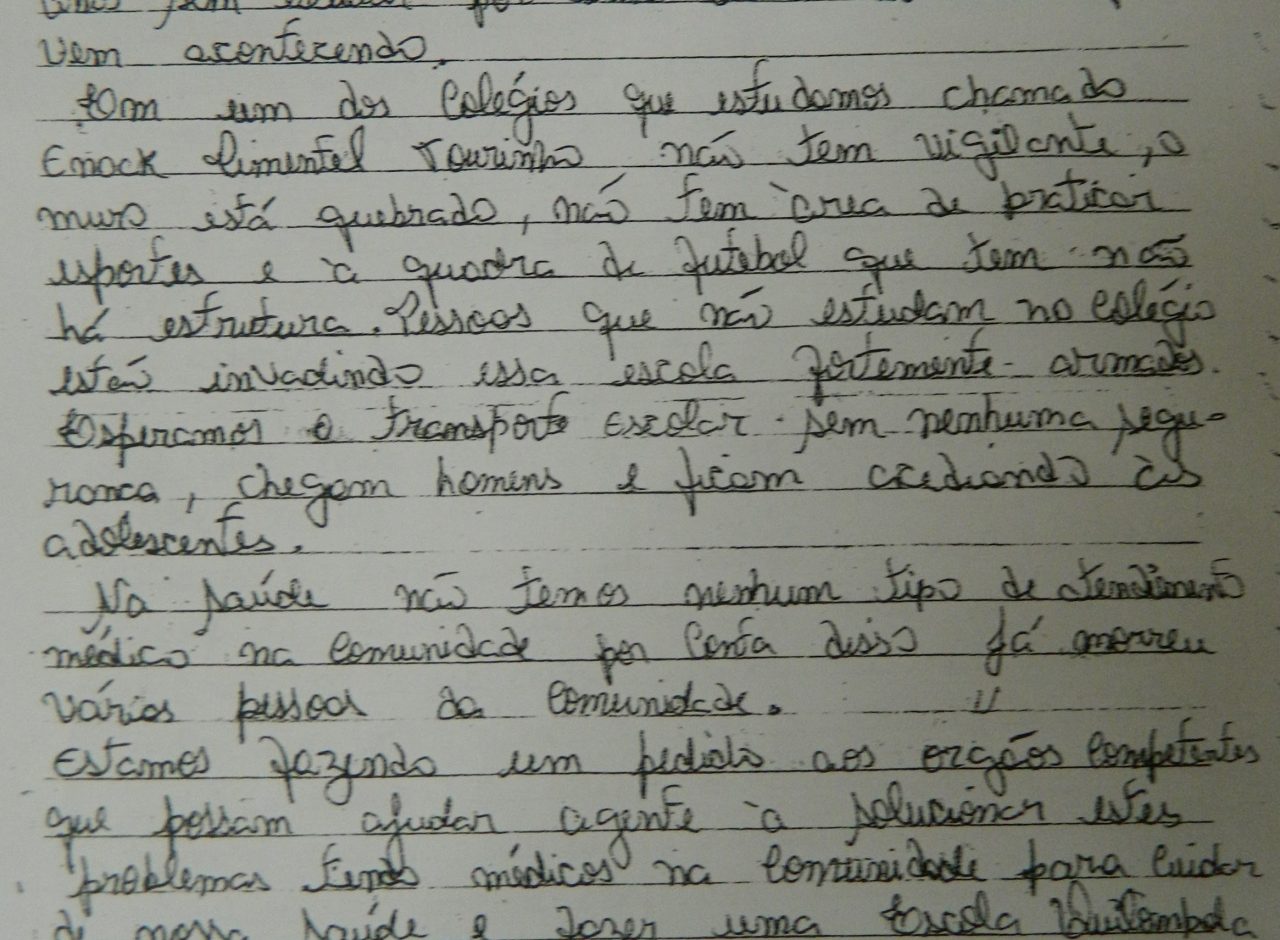 vem acontecendo.
Em um dos Colégios que estudamos chamado
Enock Pimentel Tourinho não tem vigilante, o
muro está quebrado, não tem àrea de praticar
esportes e à quadra de futebol que tem não
há estrutura. Pessoas que não estudam no Colégio
estão invadindo essa escola fortemente armados.
Esperamos o transporte Escolar sem nenhuma segu-
rança, chegam homens e ficam acediando às
adolescentes.
Na saúde não temos nenhum tipo de atendimento
médico na Comunidade por Conta disso já morreu
várias pessoas da Comunidade. 11
Estamos fazendo um pedido aos orgãos Competentes
que possam ajudar agente à solucionar estes
problemas tendo médicos na Comunidade para Cuidar
de nossa saúde e fazer uma Escola Quilombola